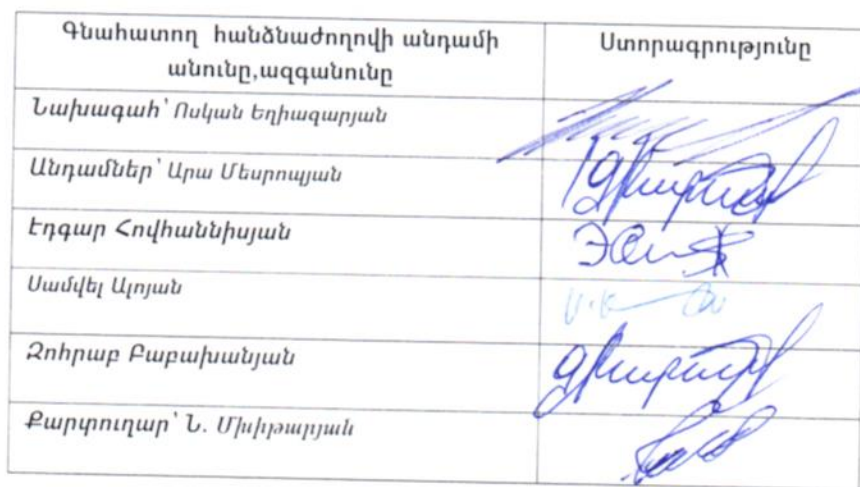 Գնահատող հանձնաժողովի անդամի
անունը,ազգանունը
Ստորագրությունը
Նախագահ՝ Ոսկան Եղիազարյան
Անդամներ՝ Արա Մեսրոպյան
Էդգար Հովհաննիսյան
Սամվել Ալոյան
Զոհրաբ Բաբախանյան
Քարտուղար՝ Ն. Մխիթարյան